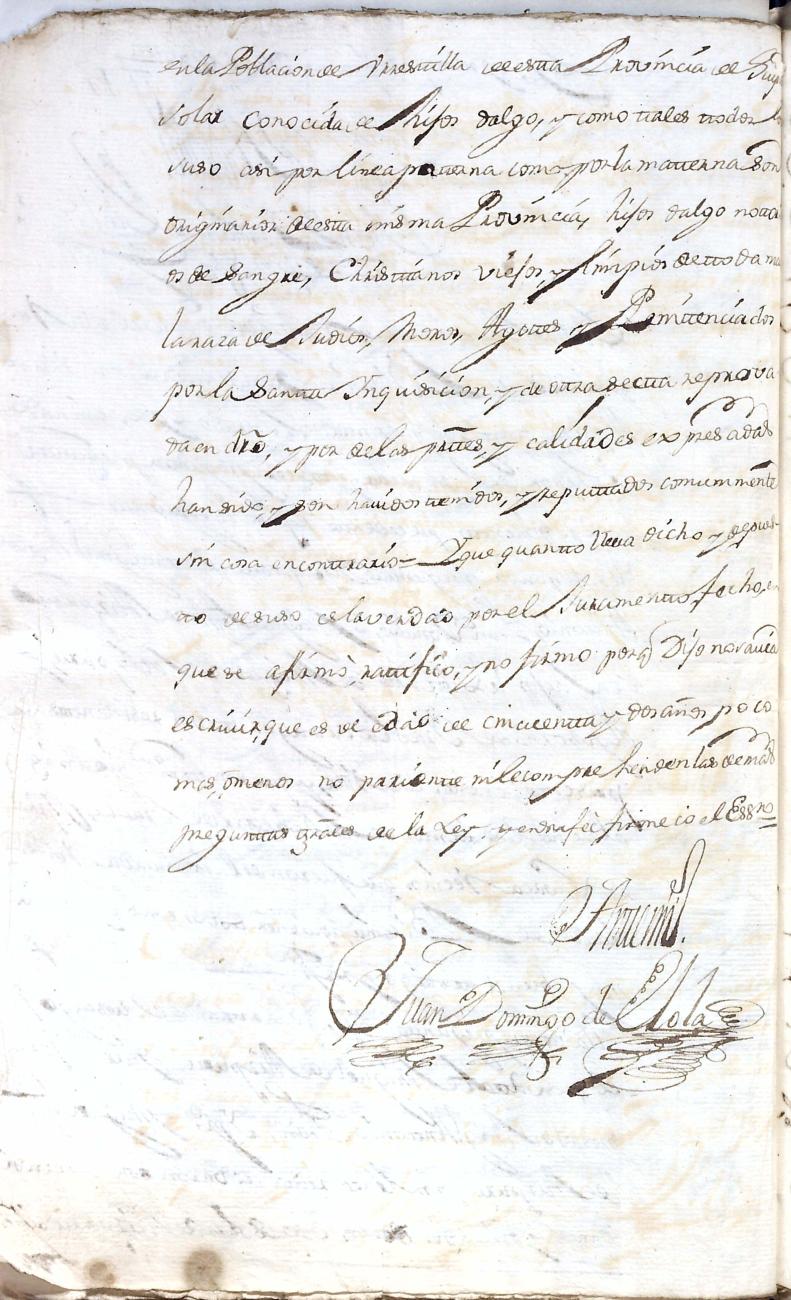 en la Poblacion de Vrrestilla de esta Provincia de Guip
solar conocida de hijos dalgo, y como tales ttodos lo
suso asi por linea patterna como por la matterna son
originarios de esta misma Provincia, hijos dalgo notto
os de Sangre, Christtianos viejos, y limpios de ttoda ma
la raza de Judios, Moros, Agottes y Penittenciados
por la Santta Inquisicion, y de ottra sectta reprova
da en dro, y por de las parttes, y calidades expresadas
han sido, y son havidos ttenidos, y reputtados comummente
sin cosa en conttrario = Y que quantto lleva dicho y depues-
tto de suso es la verdad por el Juramentto fecho, en
que se afirmò, rattificò, y no firmo porq Dijo no savia
escrivir, que es de edad de cinquentta y dos años poco
mas, o menos no parientte ni le comprehenden las demas
pregunttas grales de la Ley, y en da fee firme io el Essno =
Antte mi
Juan Domingo de Elola